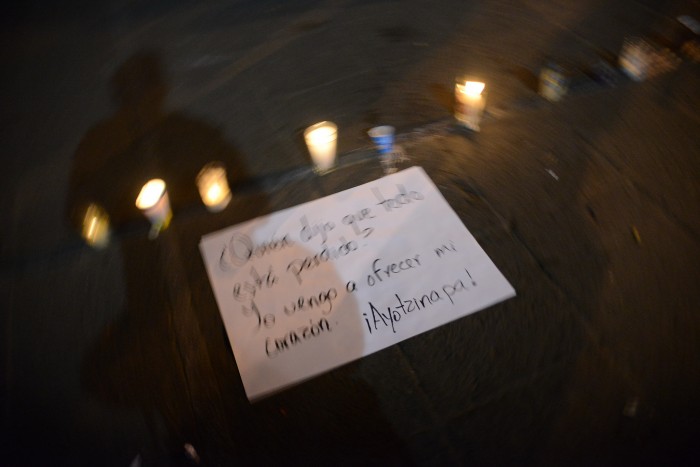 ¿Quién dijo que todo
está perdido?
Yo vengo a ofrecer mi
corazón. ¡Ayotzinapa!